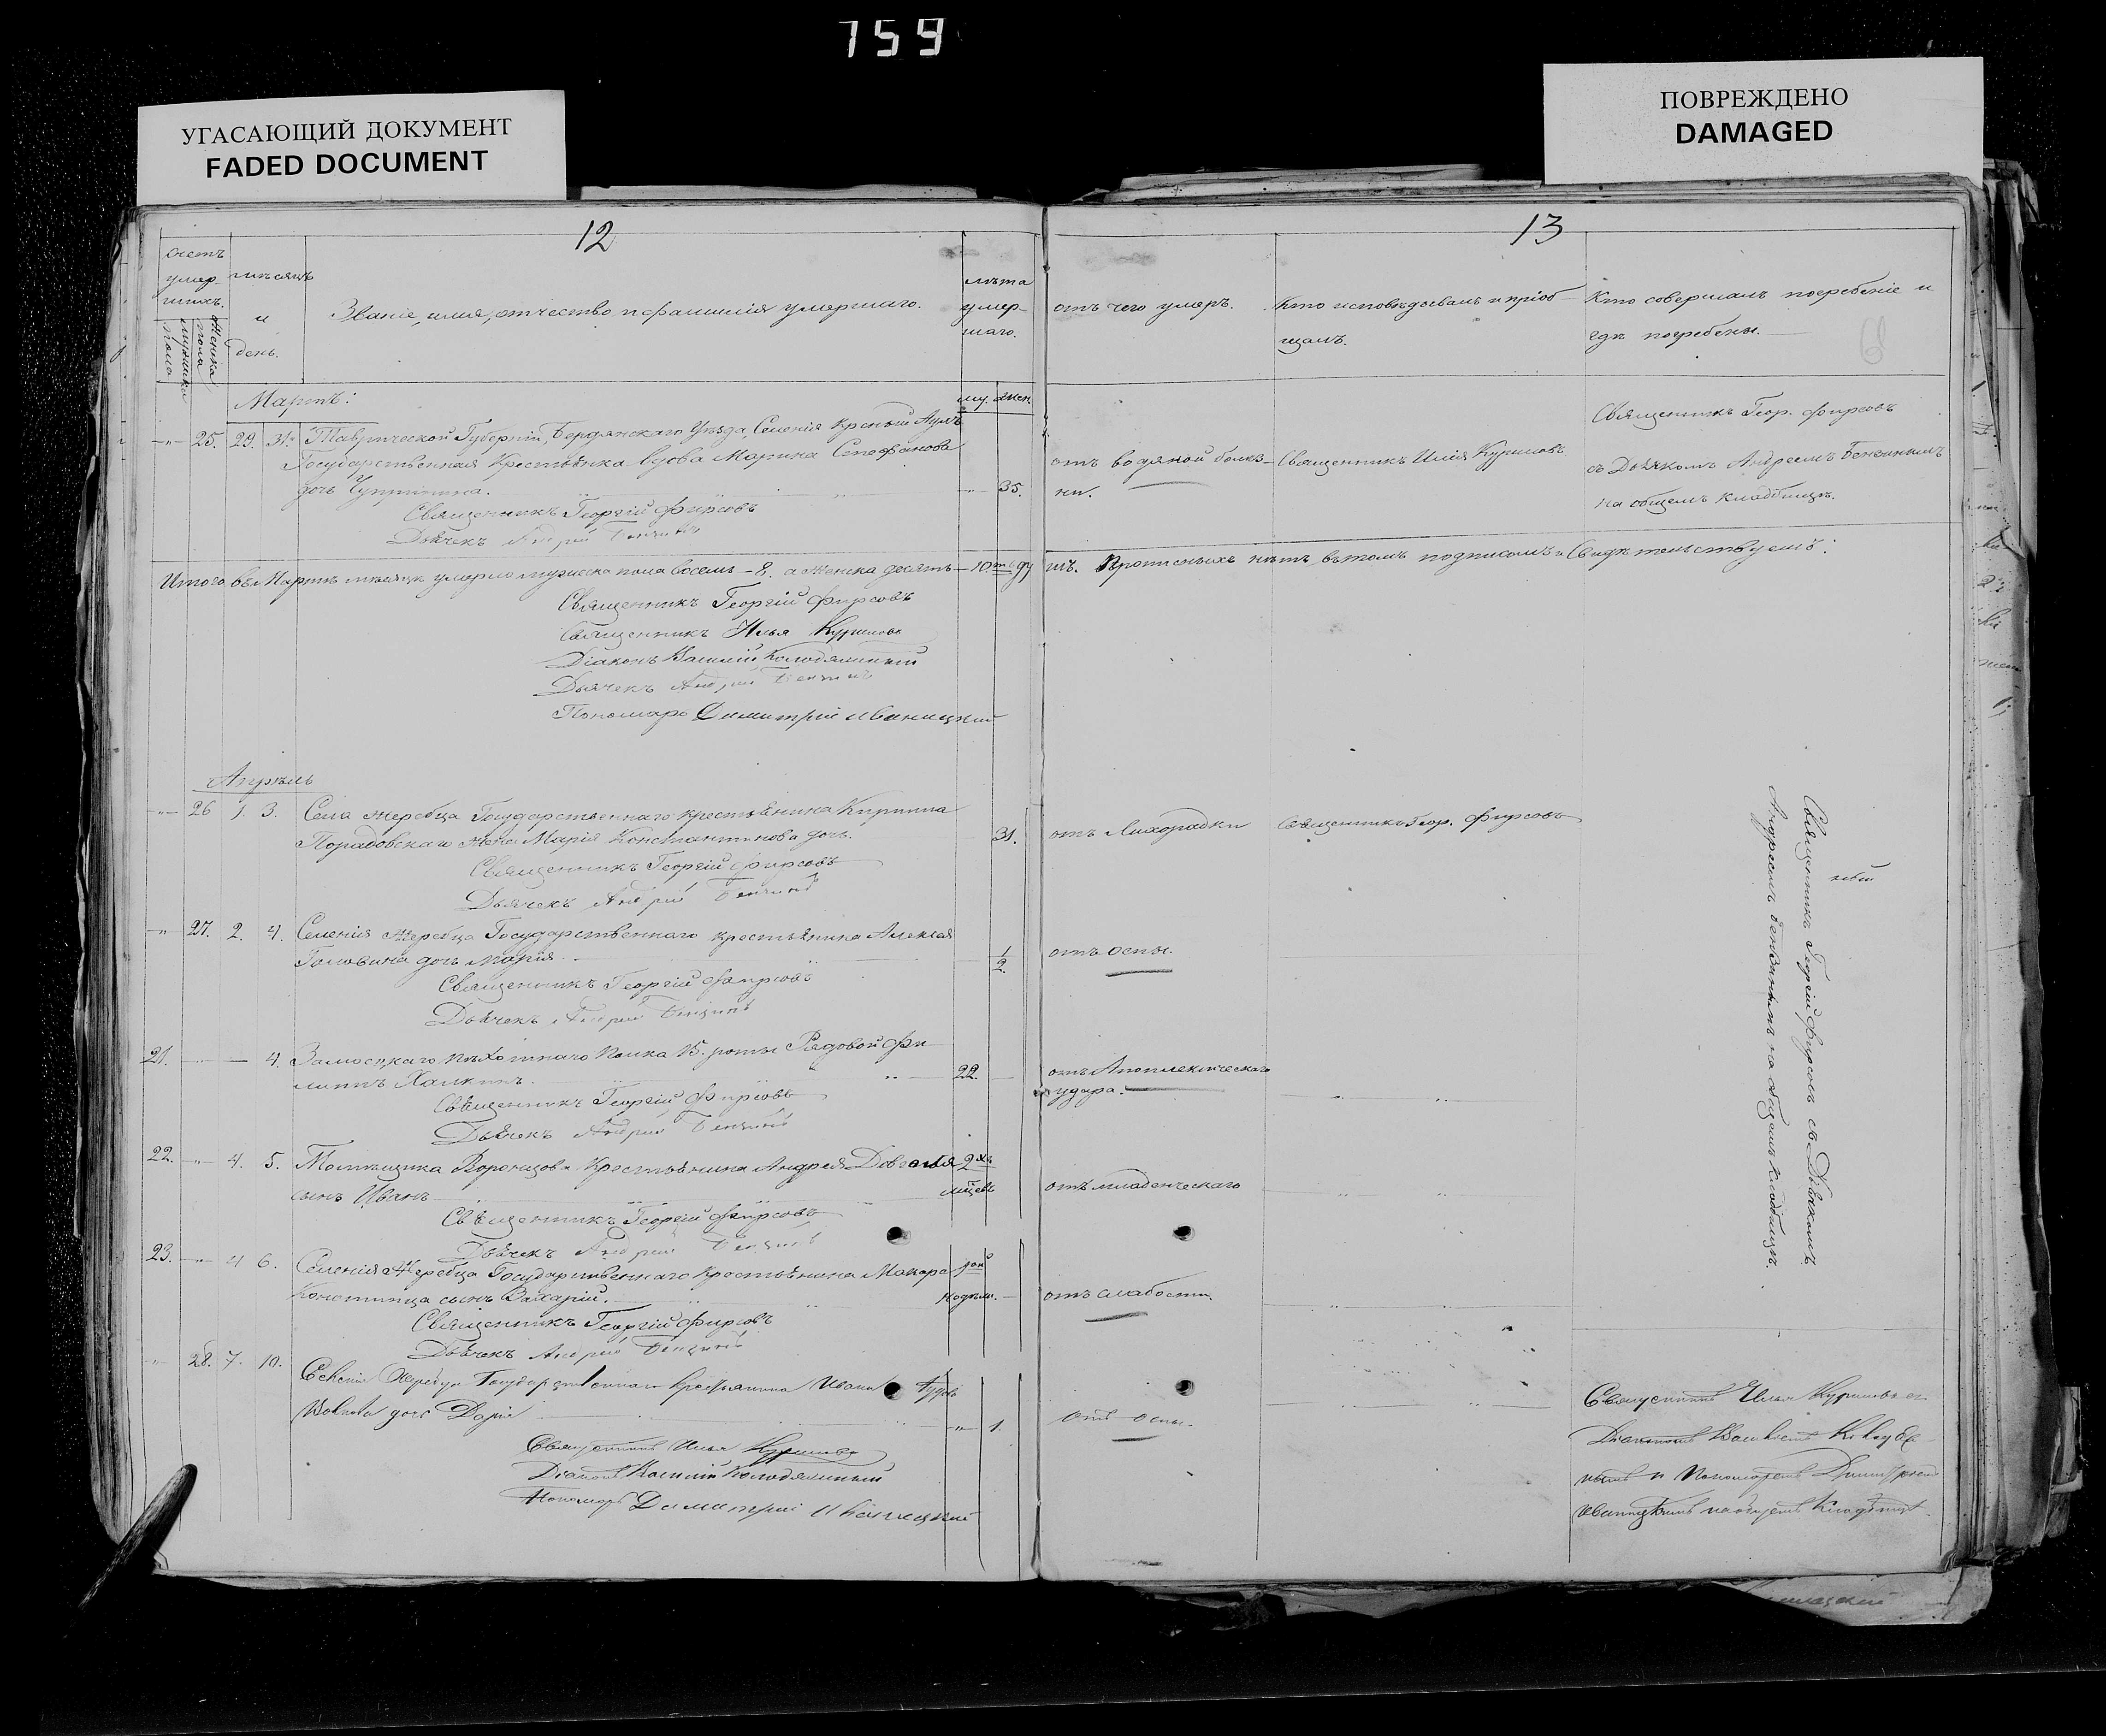 759
УГАСАЮЩИЙ ДОКУМЕНТ
FADED DOCUMENT
ПОВРЕЖДЕНО
DAMAGED
12
счетъ умер-шихъ.
мужска пола
женска пола
мѣсяцъ и день.
Званіе, имя, отчество и фамилія умершаго.
лѣта умер-шаго.
му. жен.
Мартъ:
25. 29. 31. Таврической Губерніи, Бердянскаго Уѣзда, Селенія
Государственная Крестьянка вдова Марина Стефанова
дочь 35.
Священникъ Георгій Фирсовъ
Дьячекъ Андрей
Итого въ Мартѣ мѣсяцѣ умерло мужеска пола восемь - 8. а женска десять - 10ть ду
Священникъ Георгій Фирсовъ
Священникъ Илья Куриловъ
Діаконъ Василій Колодяжный
Дьячекъ Андрей
Пономарь Димитрій Иваницкий
Апрѣль
26 1. 3. Села Жеребца Государственнаго крестьянина Кирилла
Порадовскаго жена Марія Константинова дочь. 31.
Священникъ Георгій Фирсовъ
Дьячекъ Андрей
27. 2. 4. Селенія Жеребца Государственнаго крестьянина Алексея
Головина дочь Марія. 1/2
Священникъ Георгій Фирсовъ
Дьячекъ Андрей
21. 4. Замосцкаго пѣхотнаго полка 15. роты Рядовой Фи
липпъ Халкинъ. 22.
Священникъ Георгій Фирсовъ
Дьячекъ Андрей
22. 4. 5. Помѣщика Воронцова Крестьянина Андрея 2хъ
сынъ Иванъ мѣсяц
Священникъ Георгій Фирсовъ
Дьячекъ Андрей
23. 4 6. Селенія Жеребца Государственнаго Крестьянина Макара
сынъ Захарій. недѣли.
Священникъ Георгій Фирсовъ
Дьячекъ Андрей
28. 7. 10. Селенія Жеребца Государственнаго Крестьянина Ивана
дочь Дарія 1.
Священникъ Илья Куриловъ
Діаконъ Василій Колодяжный
Пономарь Димитрій Иваницкий
13
отъ чего умеръ.
Кто исповѣдывалъ и пріоб-
щалъ.
Кто совершалъ погребеніе и
гдѣ погребены.
отъ водяной болѣз-
ни.
Священникъ Илія Куриловъ
Священникъ Геор. Фирсовъ
съ Дьячкомъ Андреемъ
на общемъ кладбищѣ.
шъ. Прописныхъ нѣтъ въ томъ подписомъ и Свидѣтельствуемъ:
отъ Лихорадки
Священникъ Геор. Фирсовъ
отъ оспы.
отъ Апоплексическаго
удара.
отъ младенческаго
отъ слабости.
Священникъ Георгій Фирсовъ съ Дьячкомъ
Андреемъ на общемъ кладбищѣ.
отъ оспы.
Священникъ Илья Курилов съ
Діакономъ Василіемъ Колодяж-
нымъ и Пономаремъ Димитріемъ
Иваницкимъ на общемъ Кладбищѣ